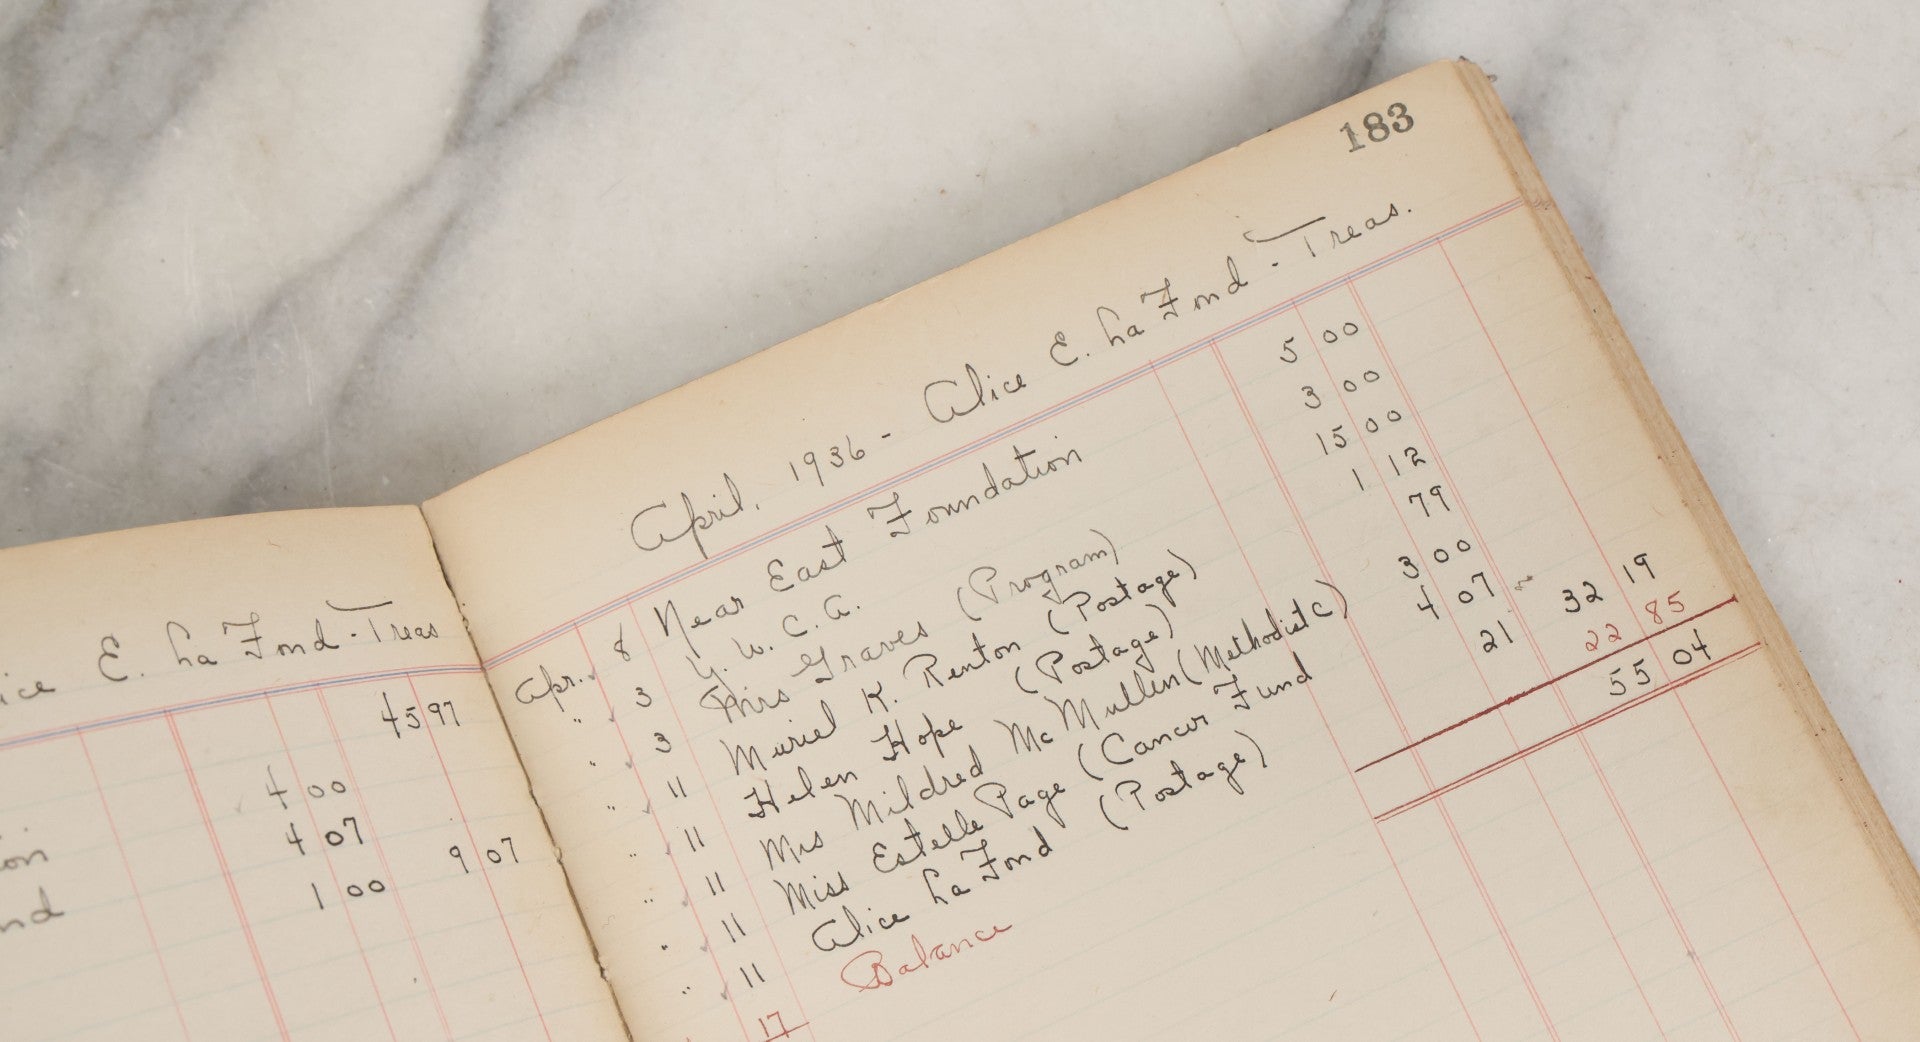 ice E. La Fond - Treas
45 97
4 00
on 4 07
nd 1 00 9 07
183
April. 1936 - Alice E. La Fond - Treas.
Apr. 8 Near East Foundation 5 00
" 3 Y. W. C. A. 3 00
" 3 Mrs Graves (Program) 15 00
" 11 Muriel K. Renton (Postage) 1 12
" 11 Helen Hope (Postage) 79
" 11 Mrs Mildred McMullen (Methodist C) 3 00
" 11 Miss Estelle Page (Cancer Fund 4 07
" 11 Alice La Fond (Postage) 21 32 19
17 Balance 22 85
55 04